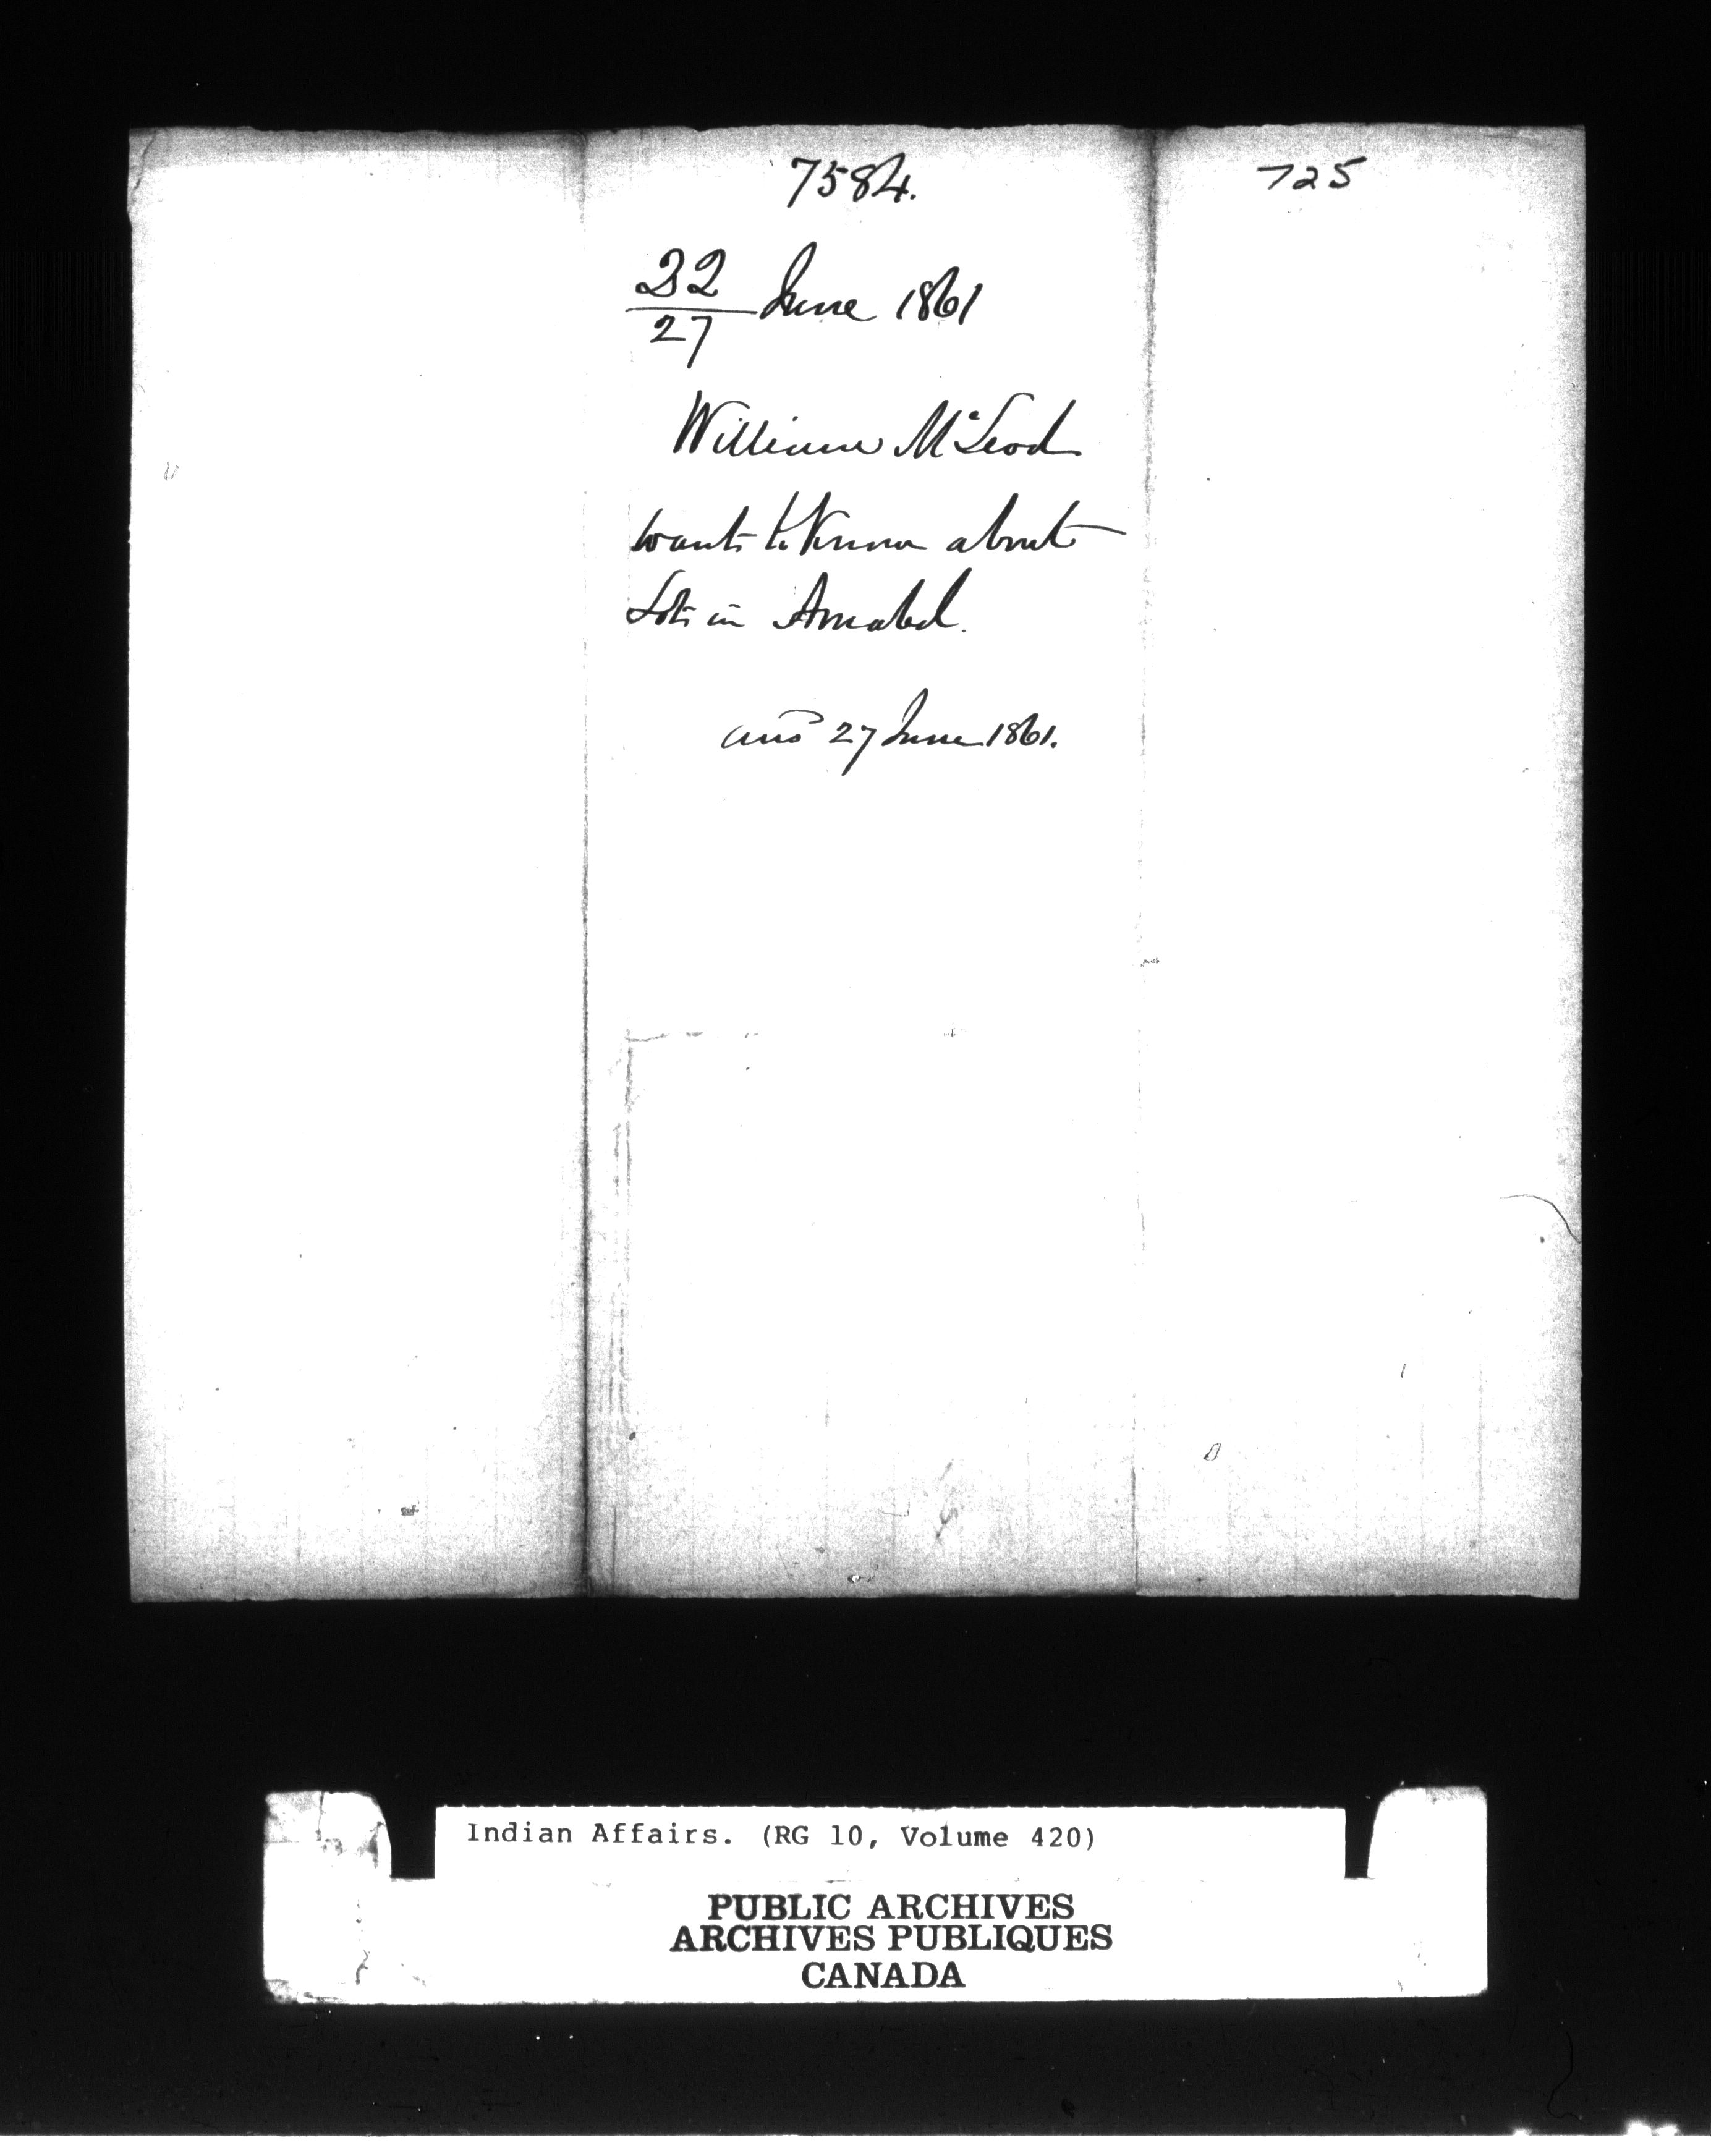 7584.
725
22/27 June 1861
William McLeod
wants to Know about
Lots in Amabel.
ansd 27 June 1861.
Indian Affairs. (RG 10, Volume 420)
PUBLIC ARCHIVES
ARCHIVES PUBLIQUES
CANADA